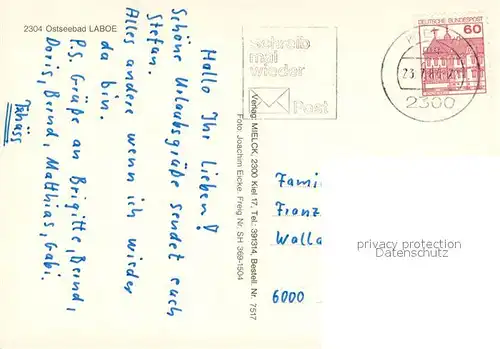 2304 Ostseebad LABOE
Hallo Ihr Lieben!
Schöne Urlaubsgrüße sendet euch
Stefan.
Alles andere wenn ich wieder
da bin.
P.S. Grüße an Brigitte, Bernd,
Doris, Bernd, Matthias, Gabi.
Tshüss
Verlag: MIELCK, 2300 Kiel 17, Tel.: 391314, Bestell. Nr. 7517
Foto: Joachim Eicke. Freig Nr. SH 369-1504
schreib
mal
wieder
Post
DEUTSCHE BUNDESPOST
60
2300
Fami
Franz
Walla
6000
privacy protection
Datenschutz